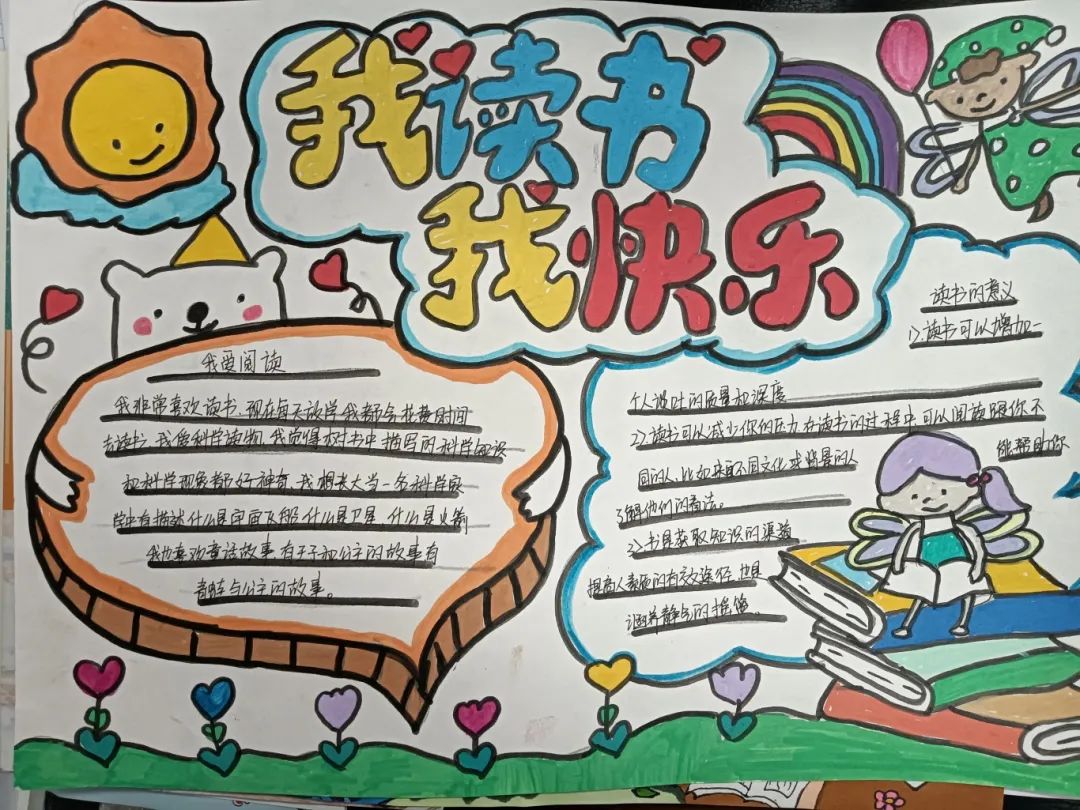 我读书
我快乐
我爱阅读
我非常喜欢读书.现在每天放学我都会花费时间
去读书.我爱科学读物.我觉得对书中描写的科学知识
和科学现象都好神奇.我想长大当一名科学家
学中有描述什么是宇宙飞船.什么是卫星.什么是火箭
我也喜欢童话故事.有王子和公主的故事有
青蛙与公主的故事。
读书的意义
1).读书可以增加一
个人谈吐的质量和深度
2).读书可以减少你的压力.在读书的过程中.可以阅读跟你不
能帮助你
同的人.比如来自不同文化或背景的人
了解他们的看法。
3).书是获取知识的渠道
提高人素质的有效途径.也是
涵养静气的摇篮。